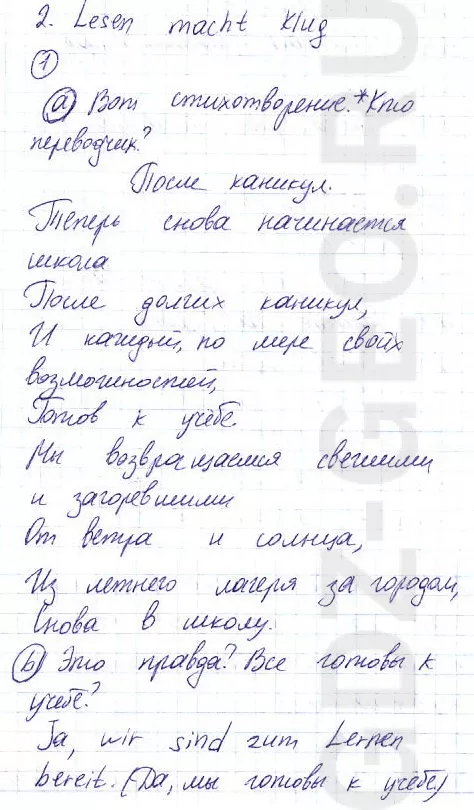 2. Lesen macht klug
1
a) Вот стихотворение.* Кто
переводчик?
После каникул.
Теперь снова начинается
школа
После долгих каникул,
И каждый, по мере свойх
возможностей,
Готов к учёбе.
Мы возвращаемся свежими
и загоревшими
От ветра и солнца,
Из летнего лагеря за городом,
Снова в школу.
b) Это правда? Все готовы к
учебе?
Ja, wir sind zum Lernen
bereit. (Да, мы готовы к учёбе)
GDZ-GEO.RU